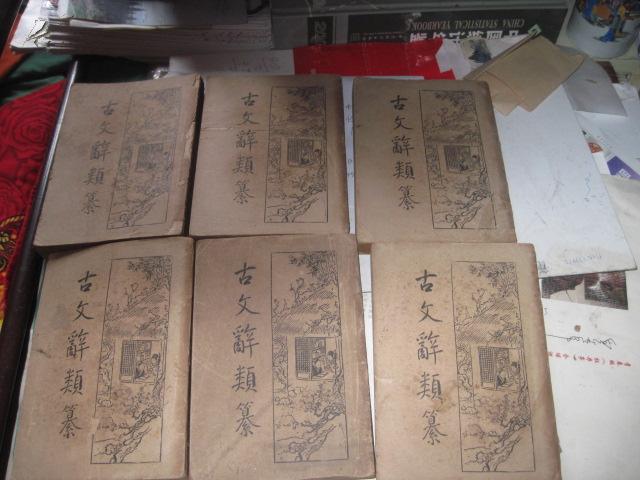 CHINA STATISTICAL YEARBOOK
古文辭類纂
古文辭類纂
古文辭類纂
古文辭類纂
古文辭類纂
古文辭類纂